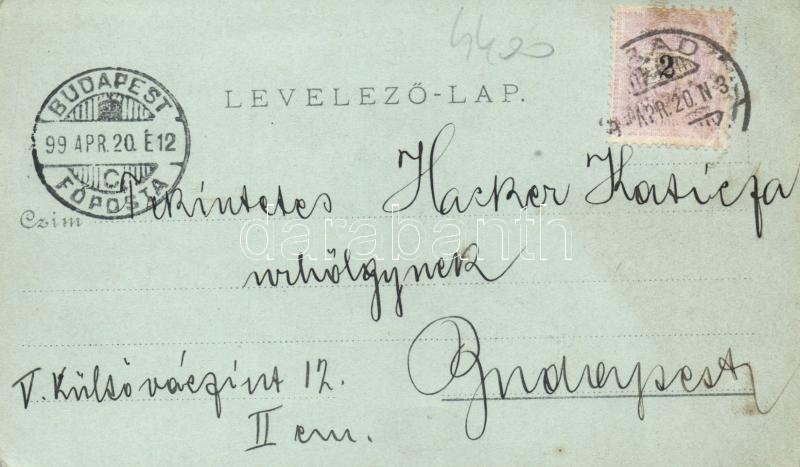 4420
BUDAPEST
99 APR. 20. É12
C
FŐPOSTA
LEVELEZŐ-LAP.
2
APR. 20. N. 3
Czim
Tekintetes Hacker Katicza
urhölgynek
Budapest
V. Külső váczi út 12.
II em.
darabanth